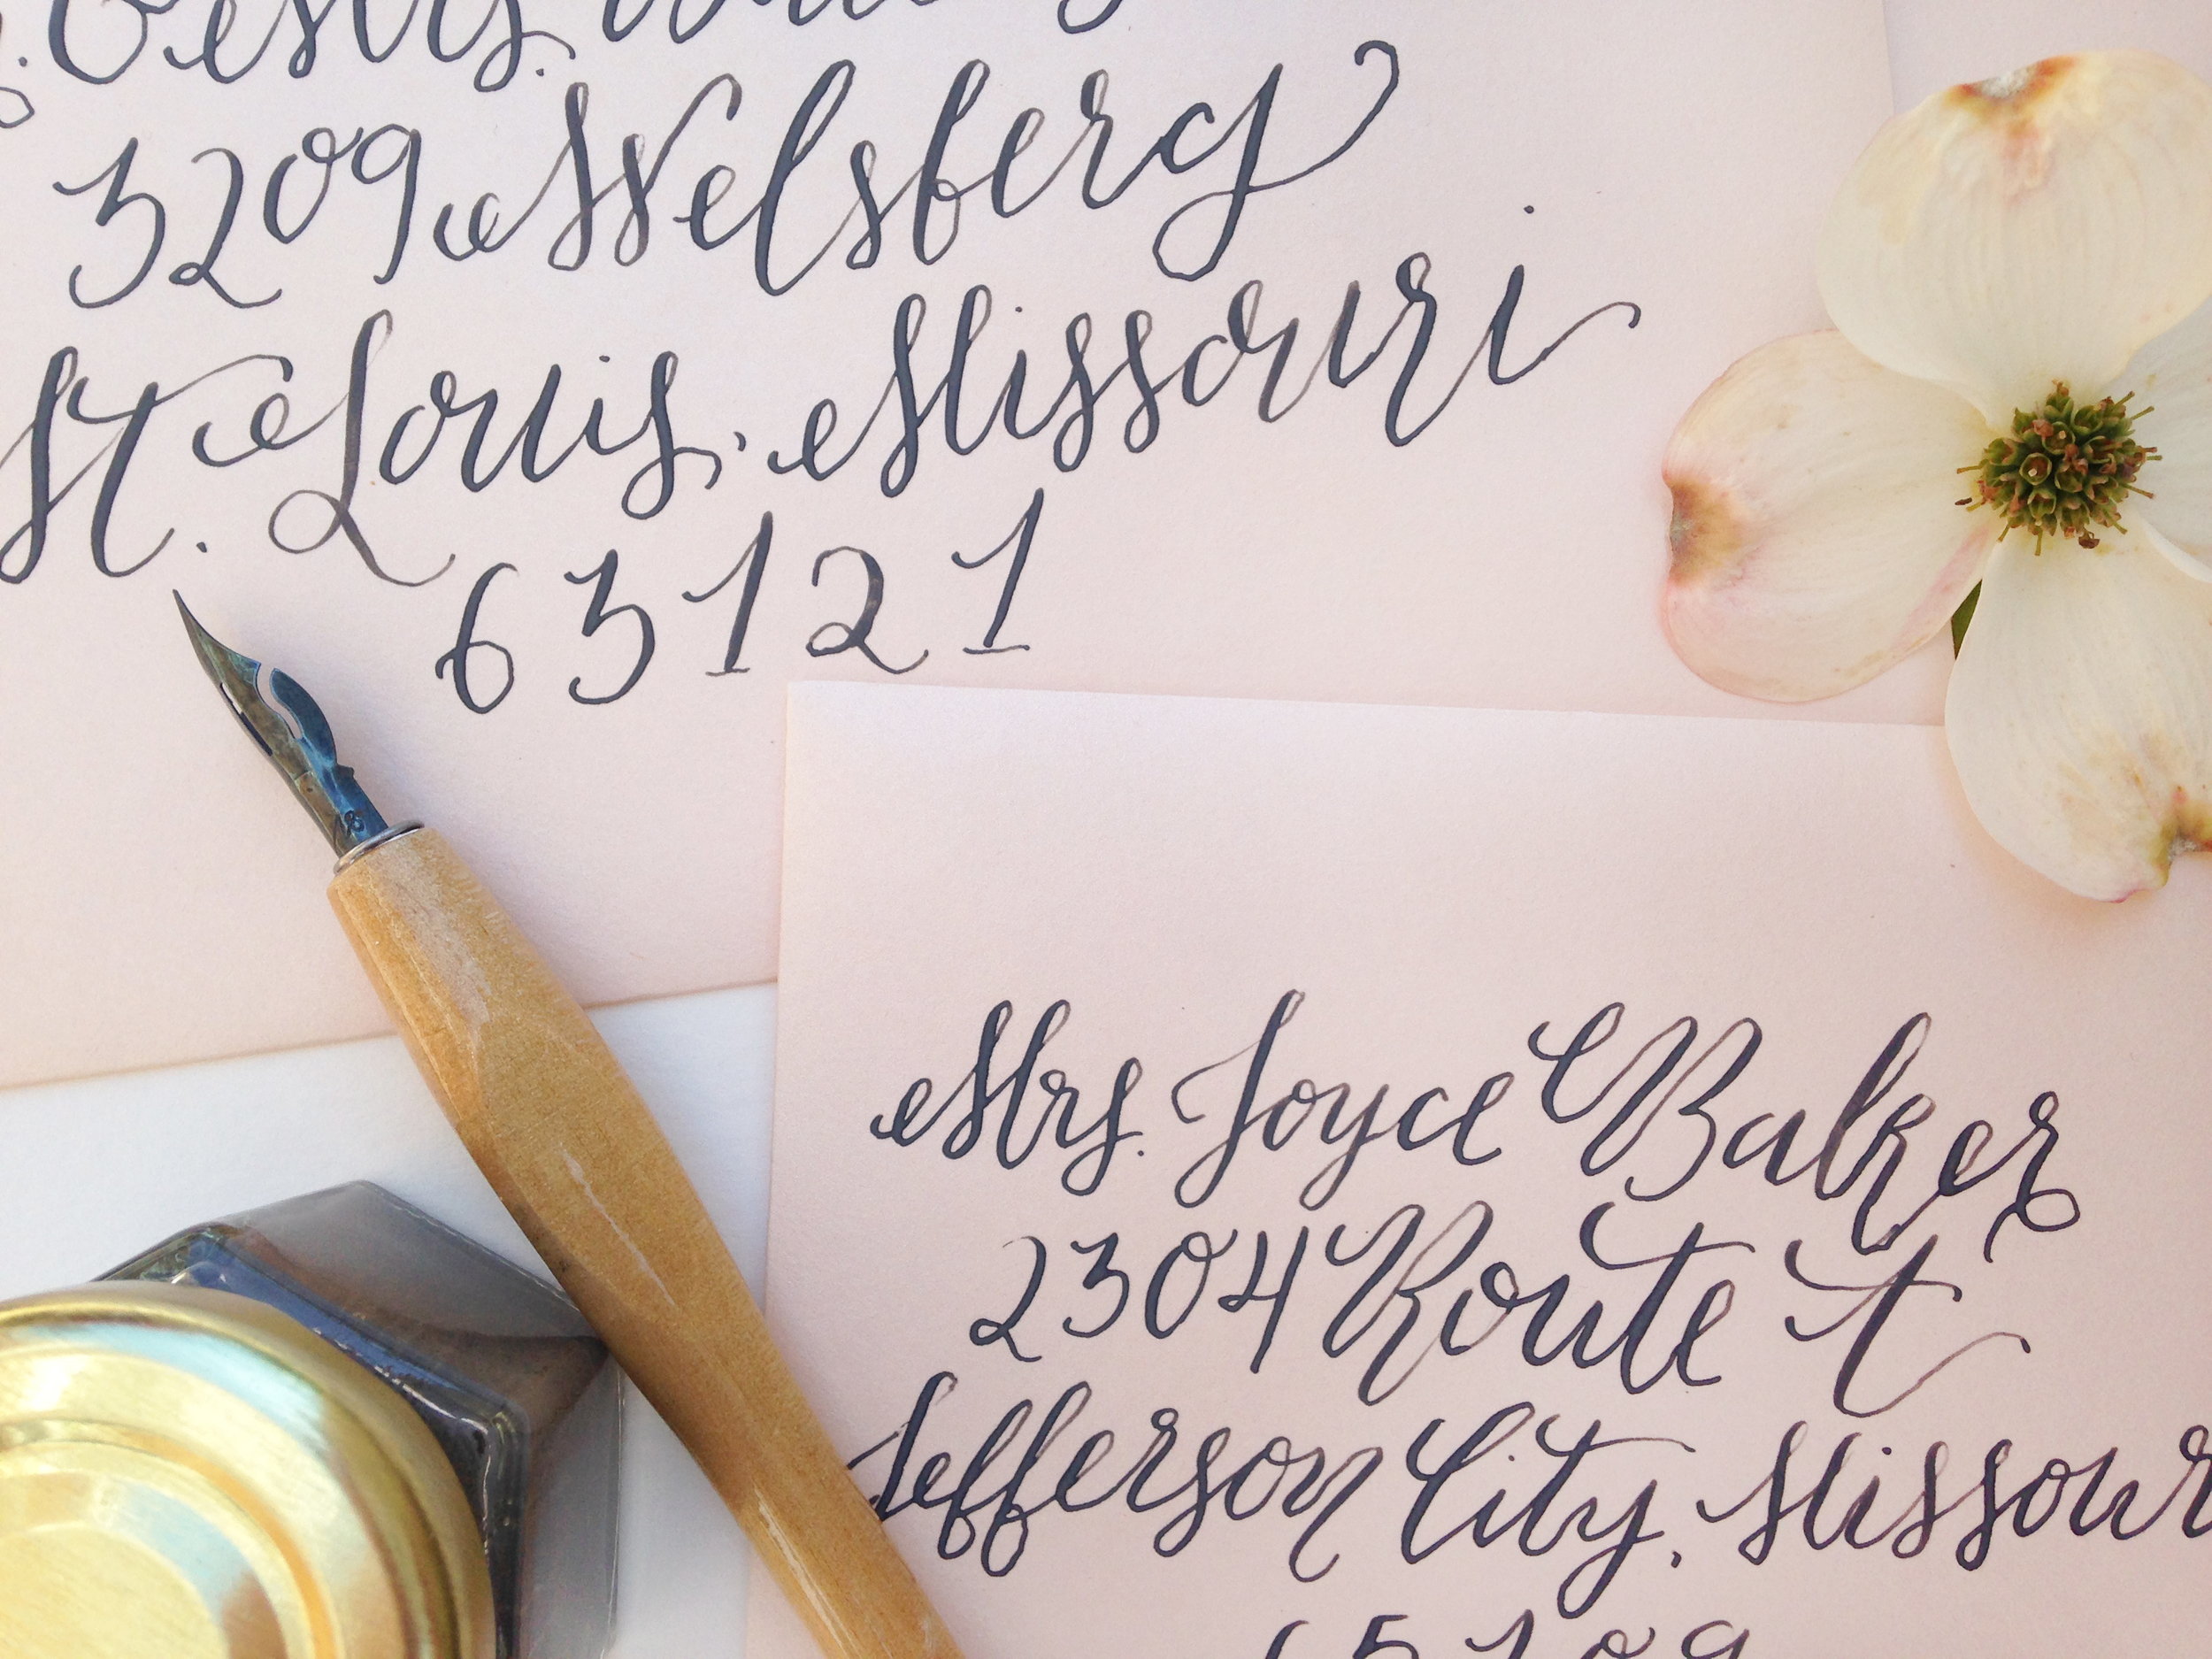 3209 Welsberg
St. Louis, Missouri
63121
Mrs. Joyce Baker
2304 Route T
Jefferson City, Missour
65109